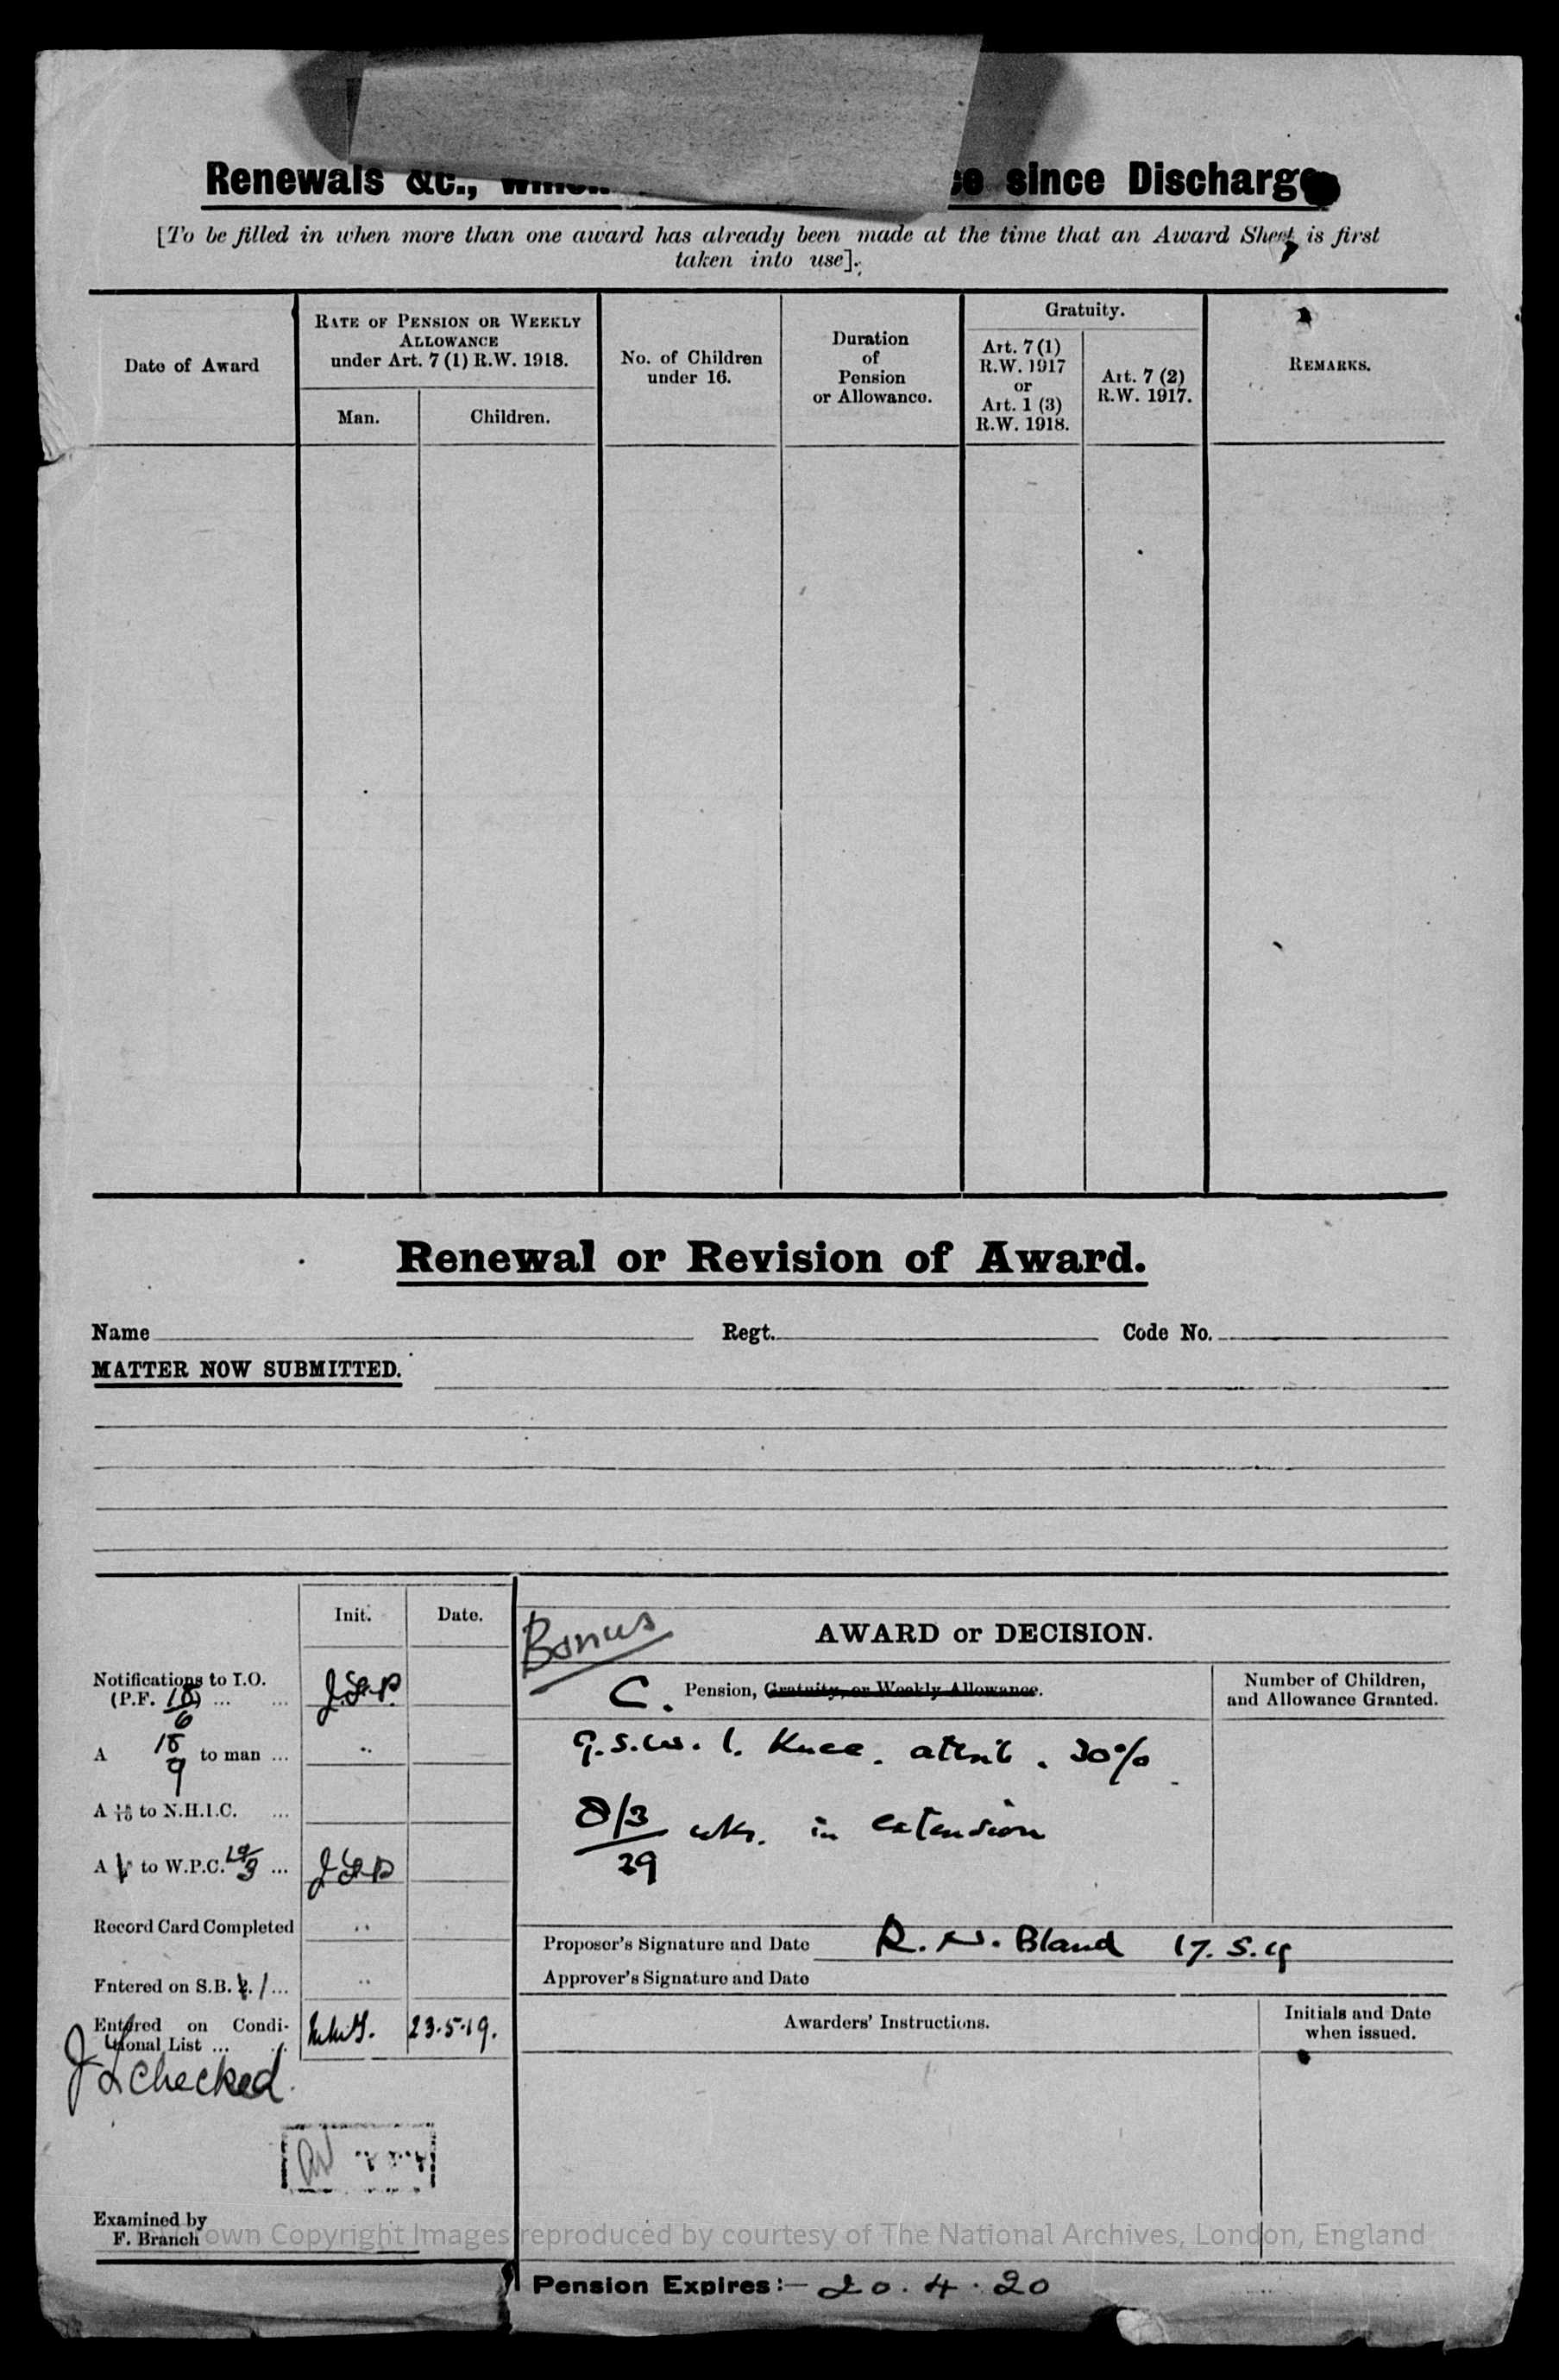 Renewals &c., which ce since Discharge
[To be filled in when more than one award has already been made at the time that an Award Sheet is first
taken into use].
Date of Award
RATE OF PENSION OR WEEKLY
ALLOWANCE
under Art. 7 (1) R.W. 1918.
Man.
Children.
No. of Children
under 16.
Duration
of
Pension
or Allowance.
Gratuity.
Art. 7 (1)
R.W. 1917
or
Art. 1 (3)
R.W. 1918.
Art. 7 (2)
R.W. 1917.
REMARKS.
Renewal or Revision of Award.
Name Regt. Code No.
MATTER NOW SUBMITTED.
Init. Date.
Notifications to I.O.
(P.F. 18/6) ... ... J.S.P.
A 18/9 to man ... "
A to N.H.I.C. ...
A to W.P.C. ...
Record Card Completed "
Entered on S.B. 1 ... "
Entered on Condi-
tional List ... 23.5.19.
checked.
Examined by
F. Branch
Bonus
AWARD or DECISION.
C. Pension, Gratuity, or Weekly Allowance.
Number of Children,
and Allowance Granted.
G.S.W. l. Knee. attrib. 30%
8/3 wks. in extension
29
Proposer's Signature and Date R. N. Bland 17.5.19
Approver's Signature and Date
Awarders' Instructions.
Initials and Date
when issued.
own Copyright Images reproduced by courtesy of The National Archives, London, England
Pension Expires:— 20.4.20